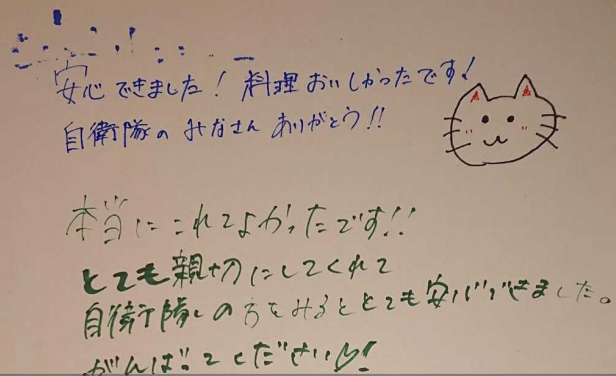 安心できました！料理おいしかったです！
自衛隊のみなさんありがとう!!
本当にこれてよかったです!!
とても親切にしてくれて
自衛隊の方をみるととても安心できました。
がんばってください!